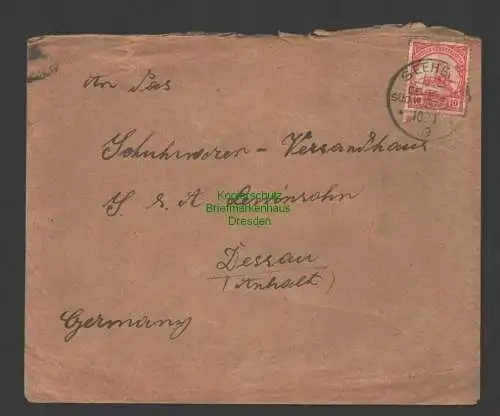 An das
Schuhwaren - Versandhaus
S. & A. Lewinsohn
Dessau
(Anhalt)
Germany
SEEHEI
10
Kopierschutz
Briefmarkenhaus
Dresden